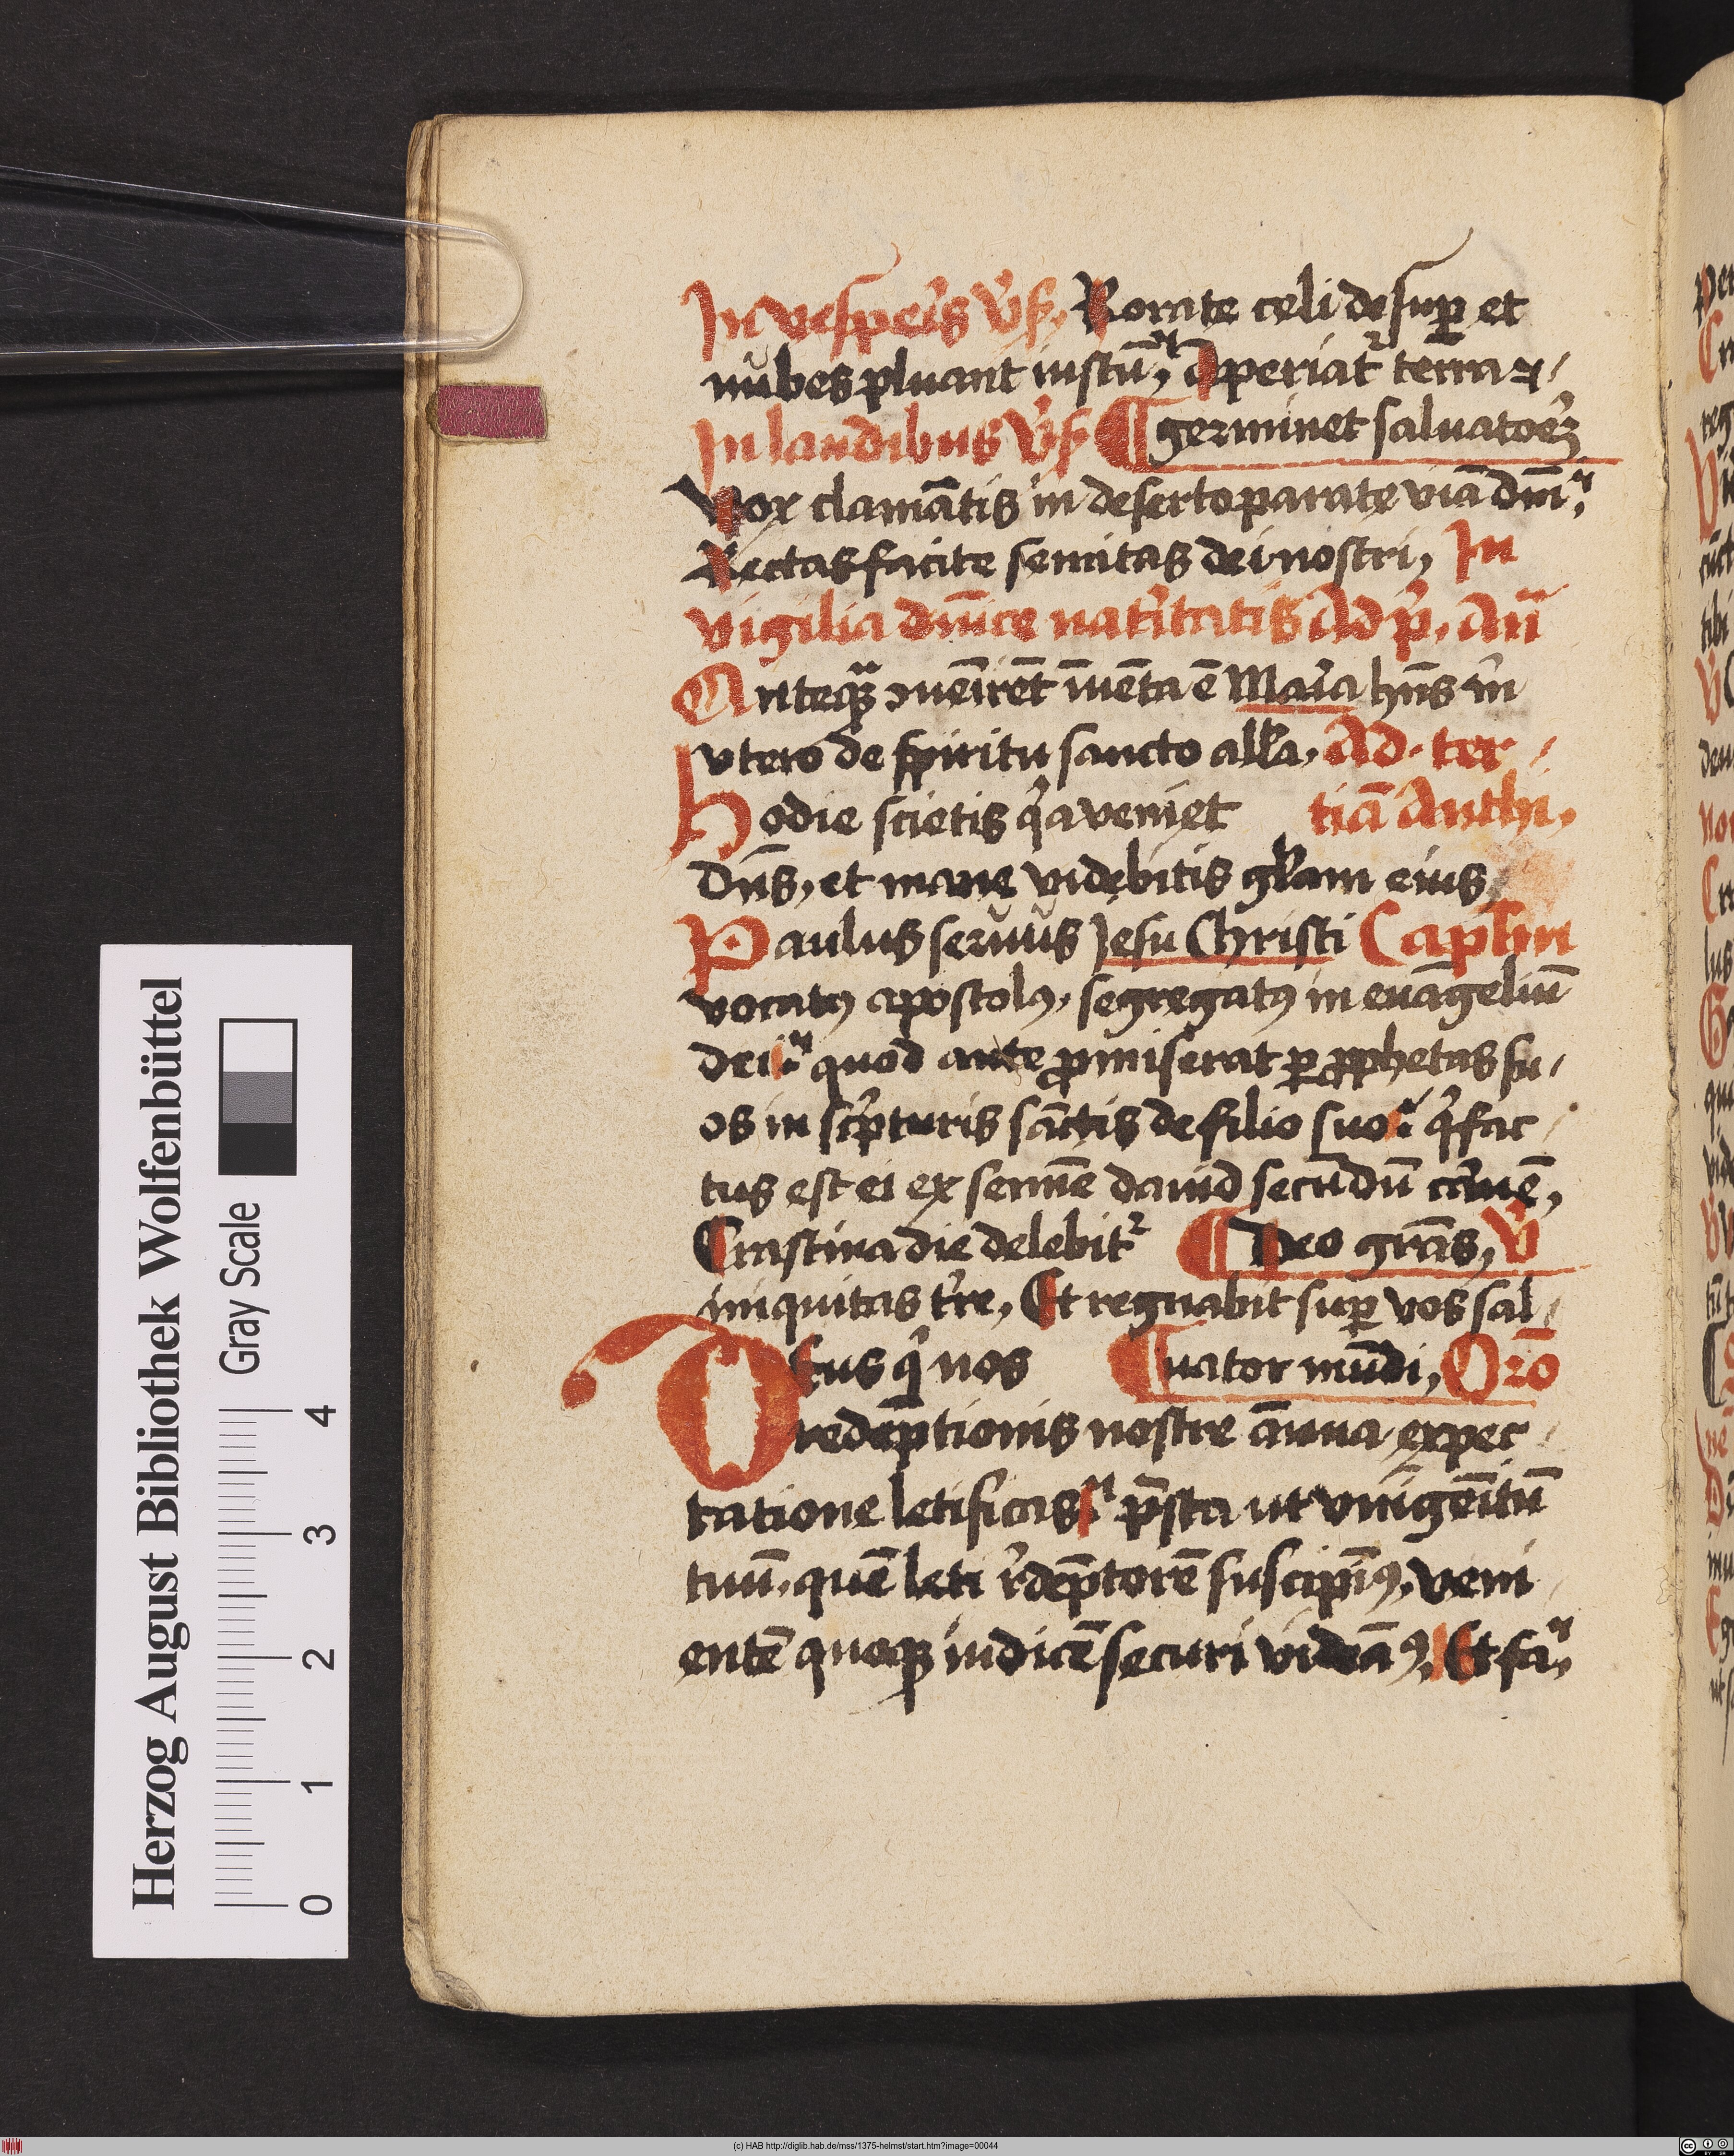 In vesꝑis v̉s, Rorate celi desuꝑ et
nubes pluant iustū, Aperiat᷑ terra ⁊
In laudibus v̉s ¶ germinet saluatorē
Vox clamātis in deserto parate viā dn̄i,
Rectas facite semitas dei nostri, In
vigilia dn̄ice natītatis Ad p̉, An̄
Anteqꝫ ↄueīret īuēta ē Maria hn̄s in
vtero de spiritu sancto alła, Ad ter
Hodie scietis qꝛa veniet tiā Anthi,
Dn̄s, et mane videbitis głam eius,
Paulus seruus Jesu Christi Capłm
vocatꝰ apostolꝰ, segregatꝰ in euāgeliū
dei: quod ante ꝓmiserat ꝑ ꝓphetas su
os in sc̉pturis sāctis de filio suo: q̉ fac
tus est ei ex semīe dauid secundū carnē,
Crastina die delebit᷑ ¶ Deo grās, V̉
iniquitas tr̉re, Et regnabit suꝑ vos sal
Deus q̉ nos ¶ uator mūdi, Orō
redēptionis nostre ānua expec
tatione letificas: p̄sta ut vnigēitū
tuū, quē leti r̉dēptorē suscipimꝰ, veni
entē quoqꝫ iudicē securi videāꝰ, Et fa,
Herzog August Bibliothek Wolfenbüttel
Gray Scale
0 1 2 3 4
(c) HAB http://diglib.hab.de/mss/1375-helmst/start.htm?image=00044